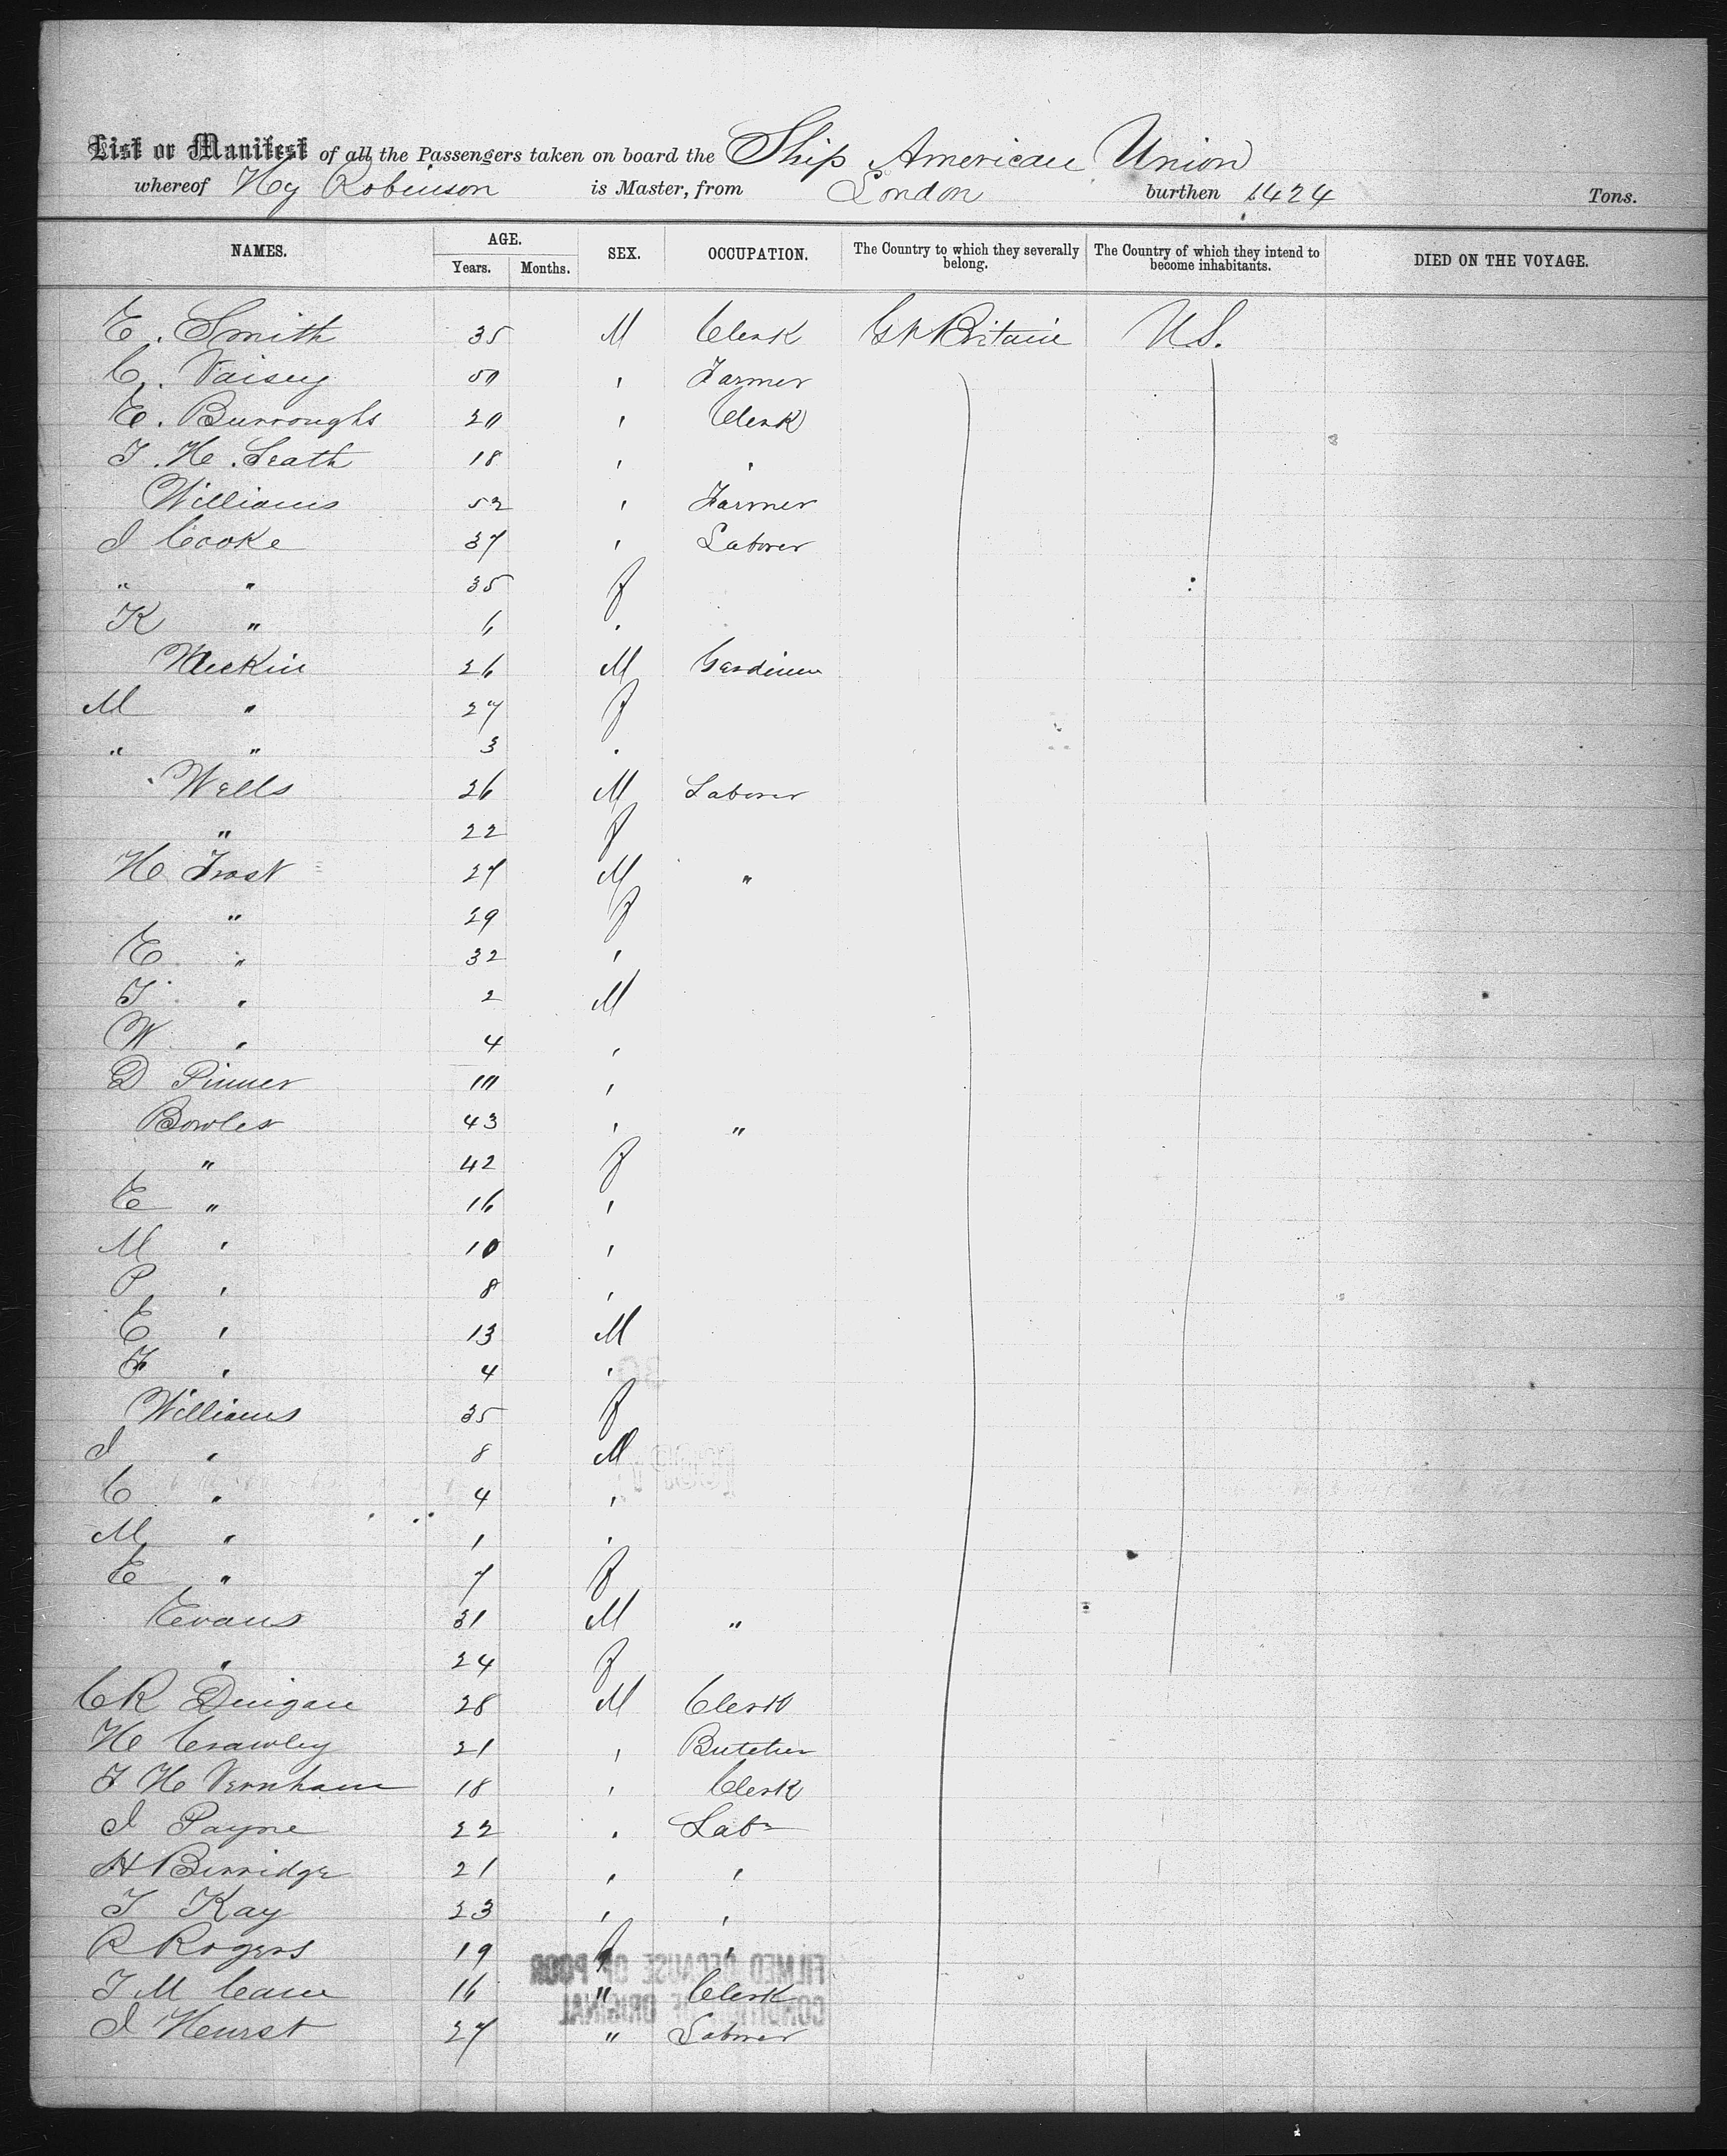 List or Manifest of all the Passengers taken on board the Ship American Union
whereof Hy Robinson is Master, from London burthen 1424 Tons.
NAMES. AGE. Years. Months. SEX. OCCUPATION. The Country to which they severally belong. The Country of which they intend to become inhabitants. DIED ON THE VOYAGE.
E. Smith 35 M Clerk Gt Britain U.S.
C. Vaisey 50 " Farmer
E. Burroughs 20 " Clerk
T. H. Leath 18 " "
Williams 52 " Farmer
J Cooke 37 " Laborer
" " 35 f
K " 6 "
Meekin 26 M Gardiner
M " 27 f
" " 3 "
Wells 26 M Laborer
" 22 f
H Frost 27 M "
" 29 f
E " 32 "
T " 2 M
W " 4 "
D Pinner "
Bowles 43 " "
" 42 f
E " 16 "
M " 10 "
P " 8 "
E " 13 M
F " 4 "
Williams 35 f
J " 8 M
C " 4 "
M " 1 "
E " 7 f
Evans 31 M "
" 24 f
C R Duigan 28 M Clerk
H Crawley 21 " Butcher
T H Vernham 18 " Clerk
J Payne 22 " Labr
H Berridge 21 " "
T Kay 23 " "
R Rogers 19 "
T M Cane 16 " Clerk
J Hurst 27 " Laborer
FILMED BECAUSE OF POOR
CONDITION OF ORIGINAL